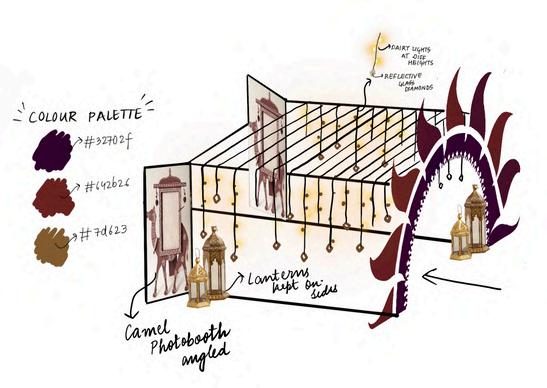 COLOUR PALETTE
#32702f
#642b26
#7d623
DAIRT LIGHTS
AT DIFF
HEIGHTS
REFLECTIVE
GLASS
DIAMONDS
Lanterns
kept on
sides
Camel
Photobooth
angled